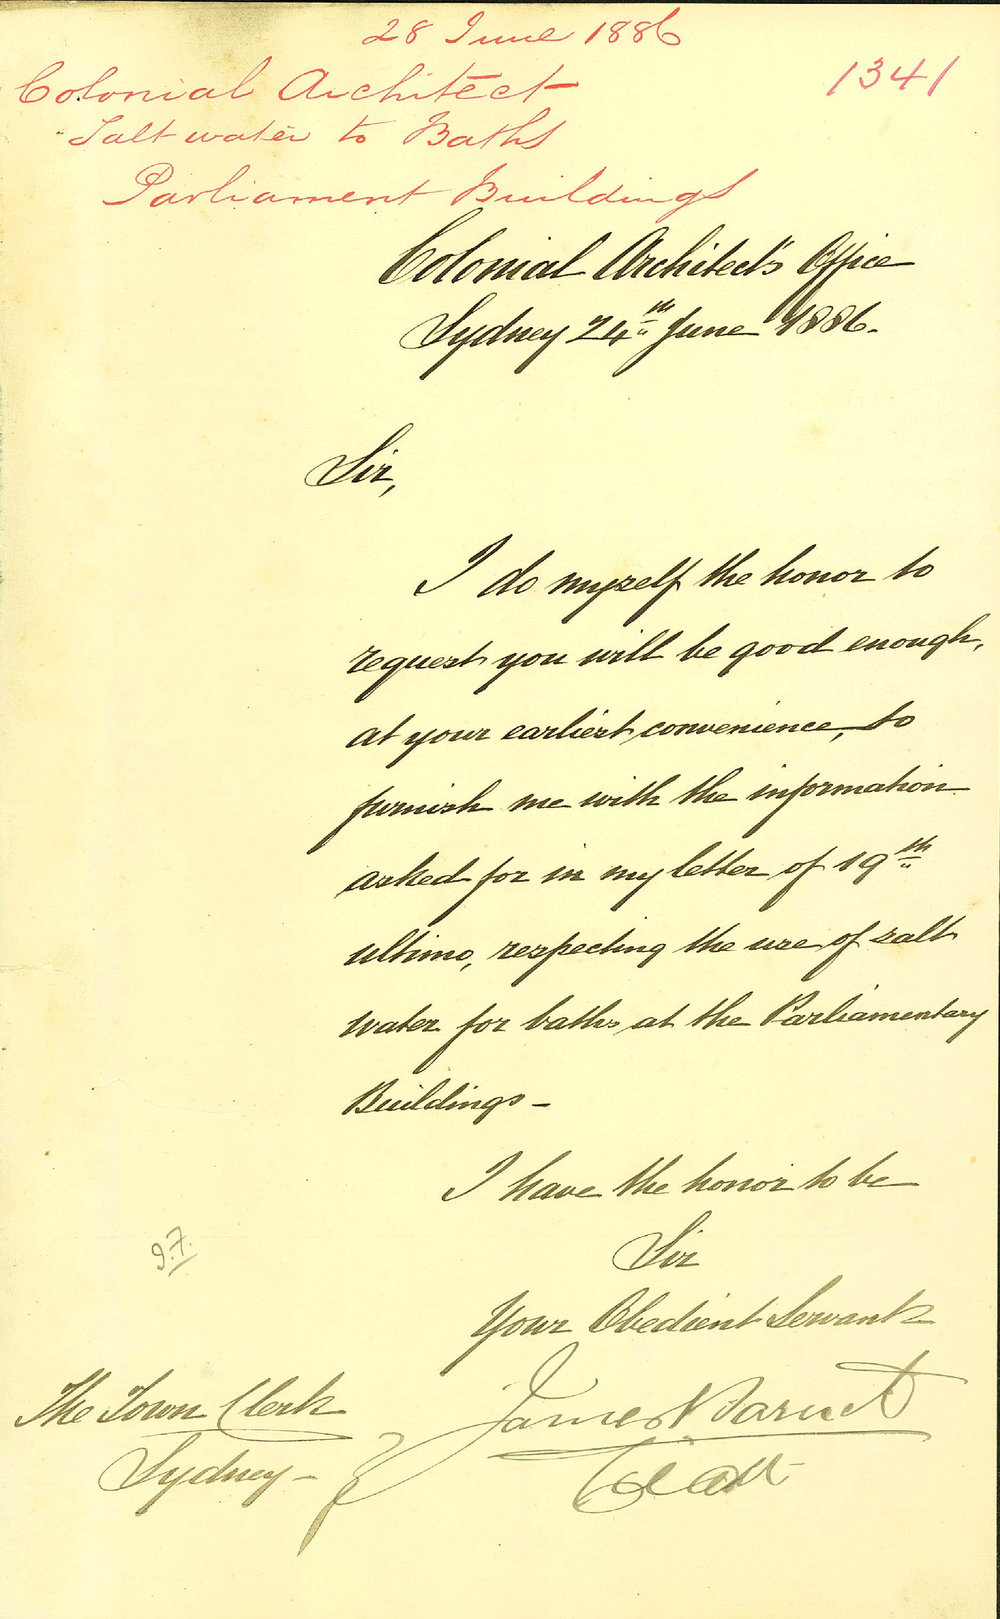 28 June 1886
1341
Colonial Architect
Salt water to Baths
Parliament Buildings
Colonial Architect's Office
Sydney 24th June 1886.
Sir,
I do myself the honor to
request you will be good enough,
at your earliest convenience, to
furnish me with the information
asked for in my letter of 19th
ultimo, respecting the use of salt
water for baths at the Parliamentary
Buildings -
I have the honor to be
Sir
Your Obedient Servant
James Barnet
Col Arct
The Town Clerk
Sydney -